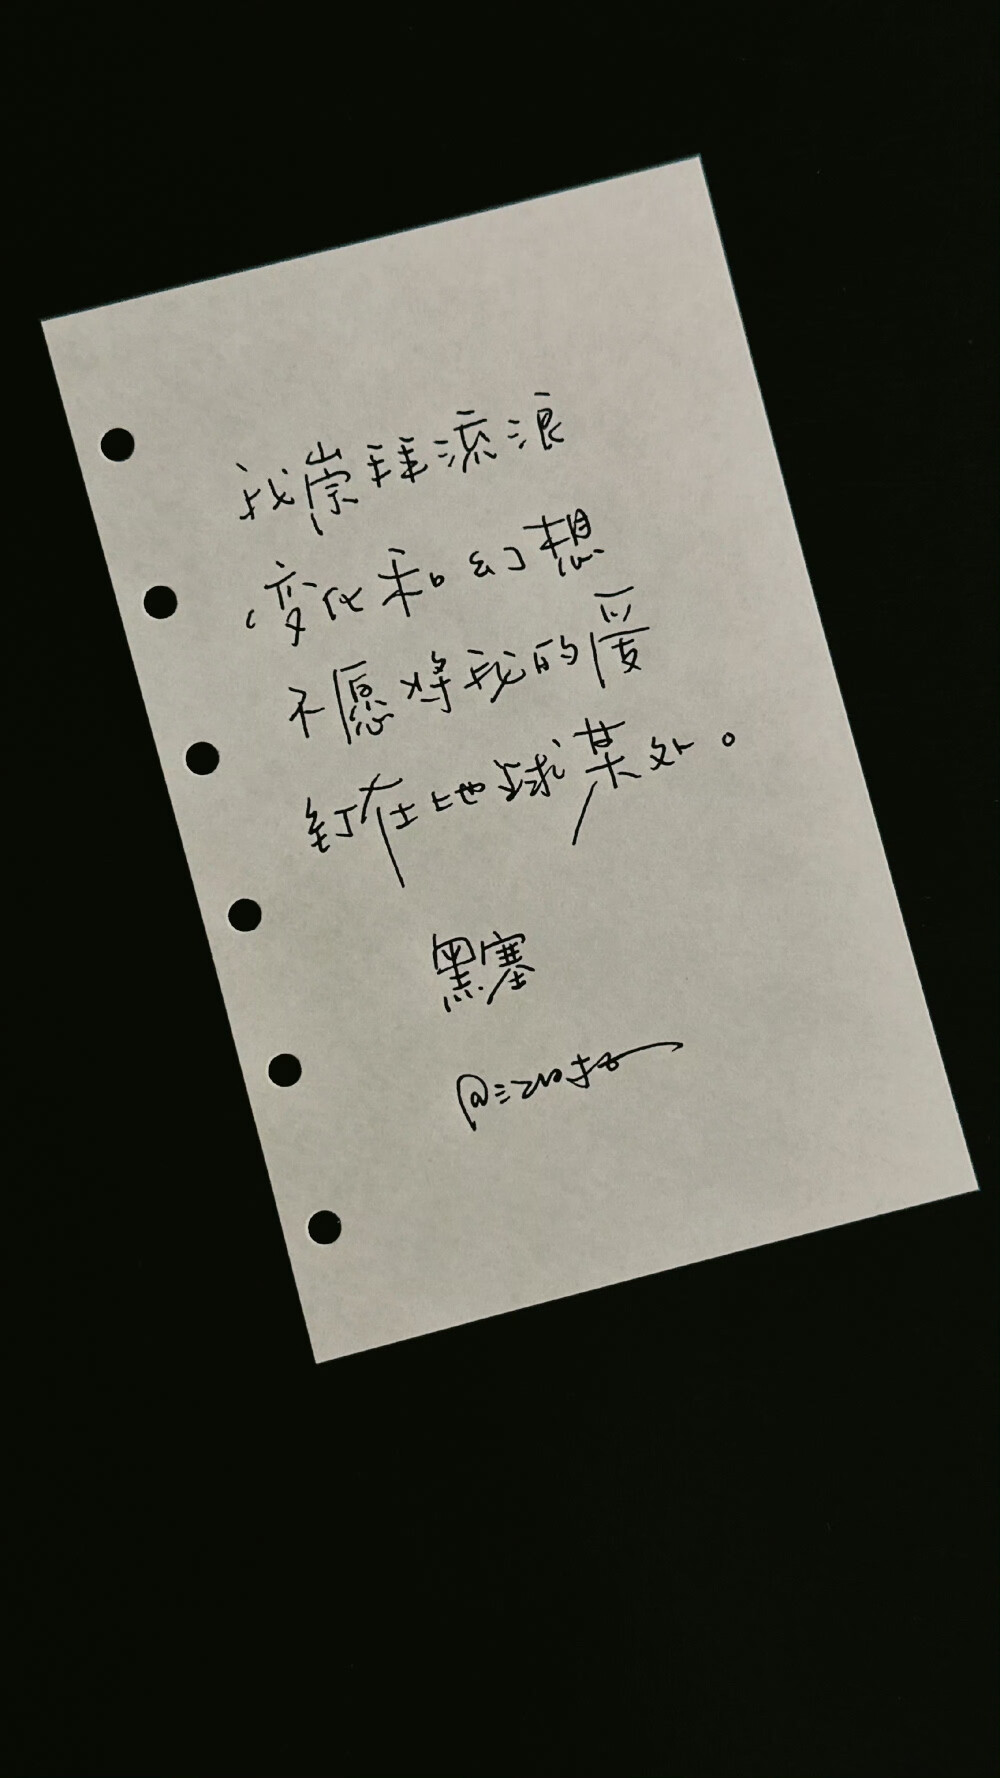 我崇拜流浪
变化和幻想
不愿将我的爱
钉在地球某处。
黑塞